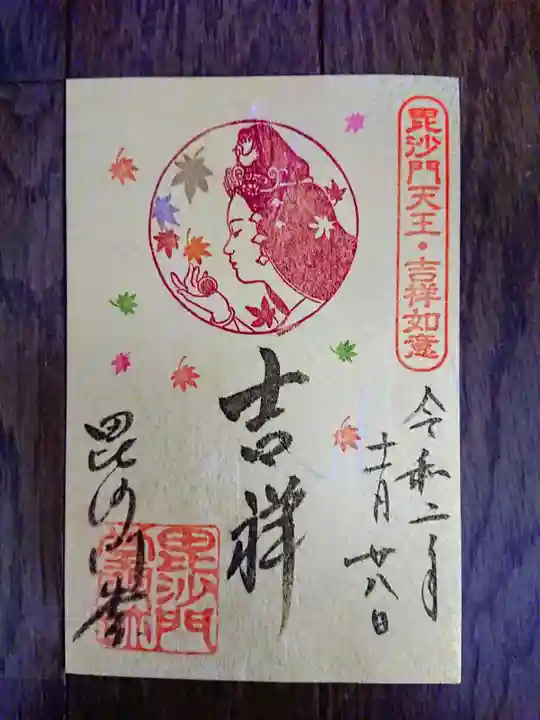 毘沙門天王・吉祥如意
令和二年
十一月廿八日
吉祥
毘沙門堂
毘沙門